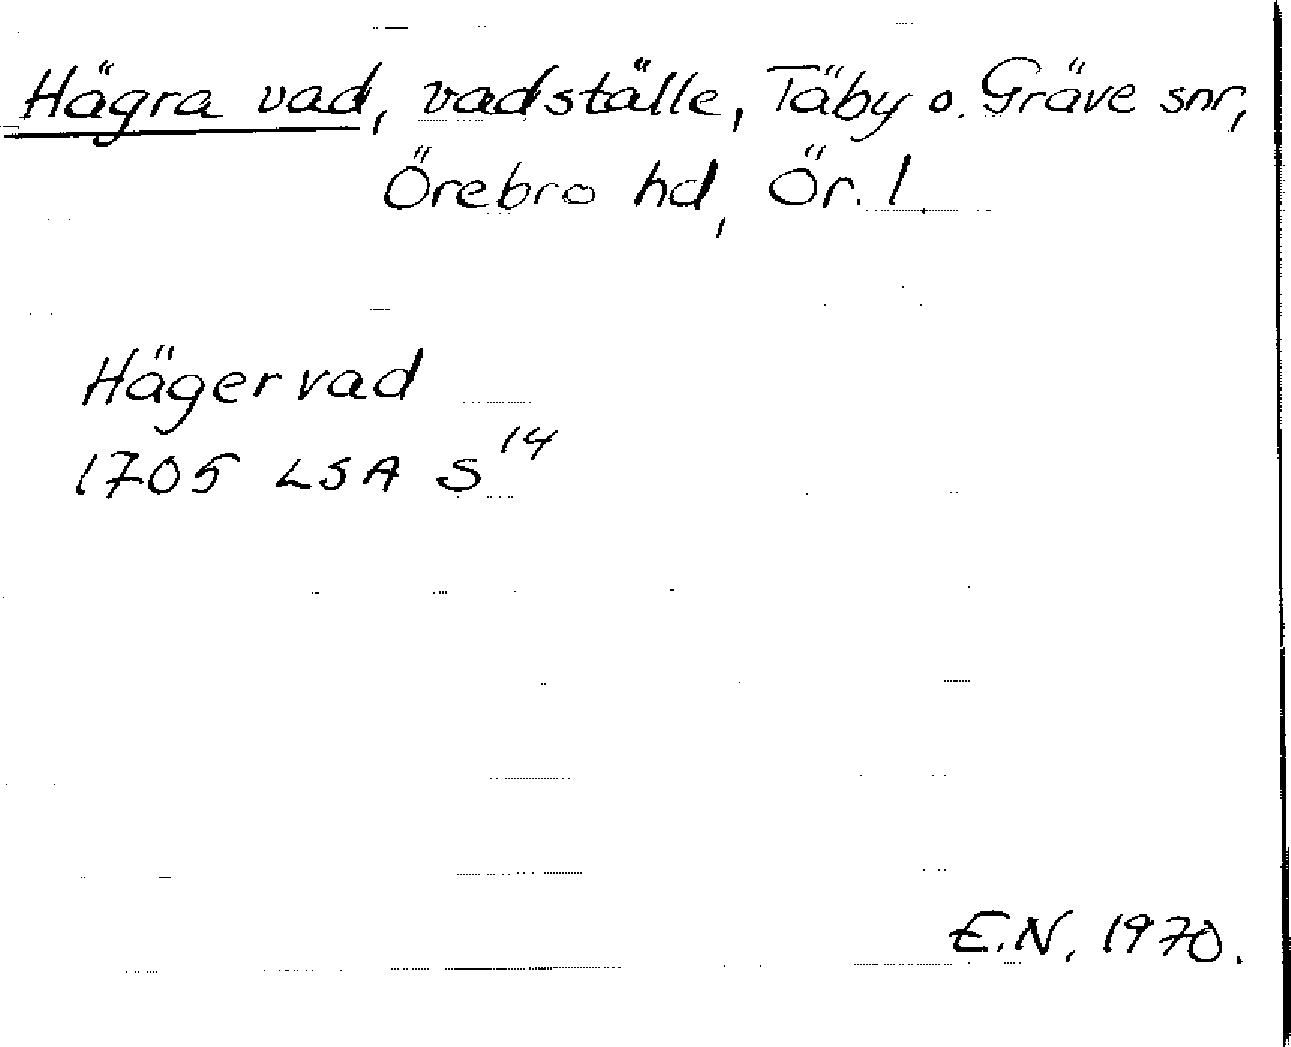 Hägra vad, vadställe, Täby o. Gräve snr,
Örebro hd, Ör. l.
Hägervad
1705 LSA S¹⁴
E.N. 1970.